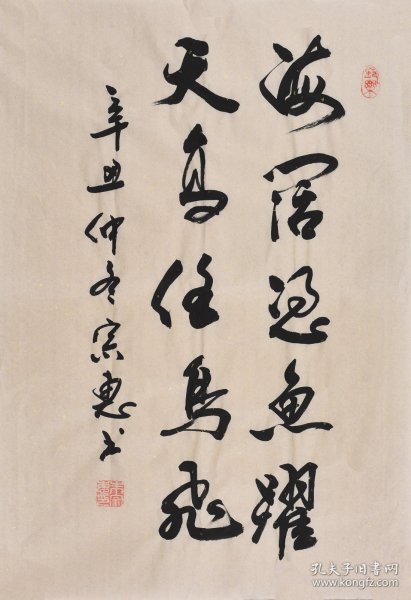 海阔凭鱼耀
天高任鸟飞
辛丑仲冬宗惠书
孔夫子旧书网
www.kongfz.com